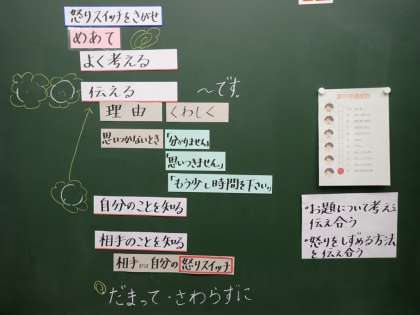 怒りスイッチをさがせ
めあて
よく考える
伝える
〜です。
理由
くわしく
思いつかないとき
「分かりません」
「思いつきません。」
「もう少し時間を下さい」
自分のことを知る
相手のことを知る
相手 自分の 怒りスイッチ
だまって・さわらずに
・お題について考えを
伝え合う
・怒りをしずめる方法
を伝え合う